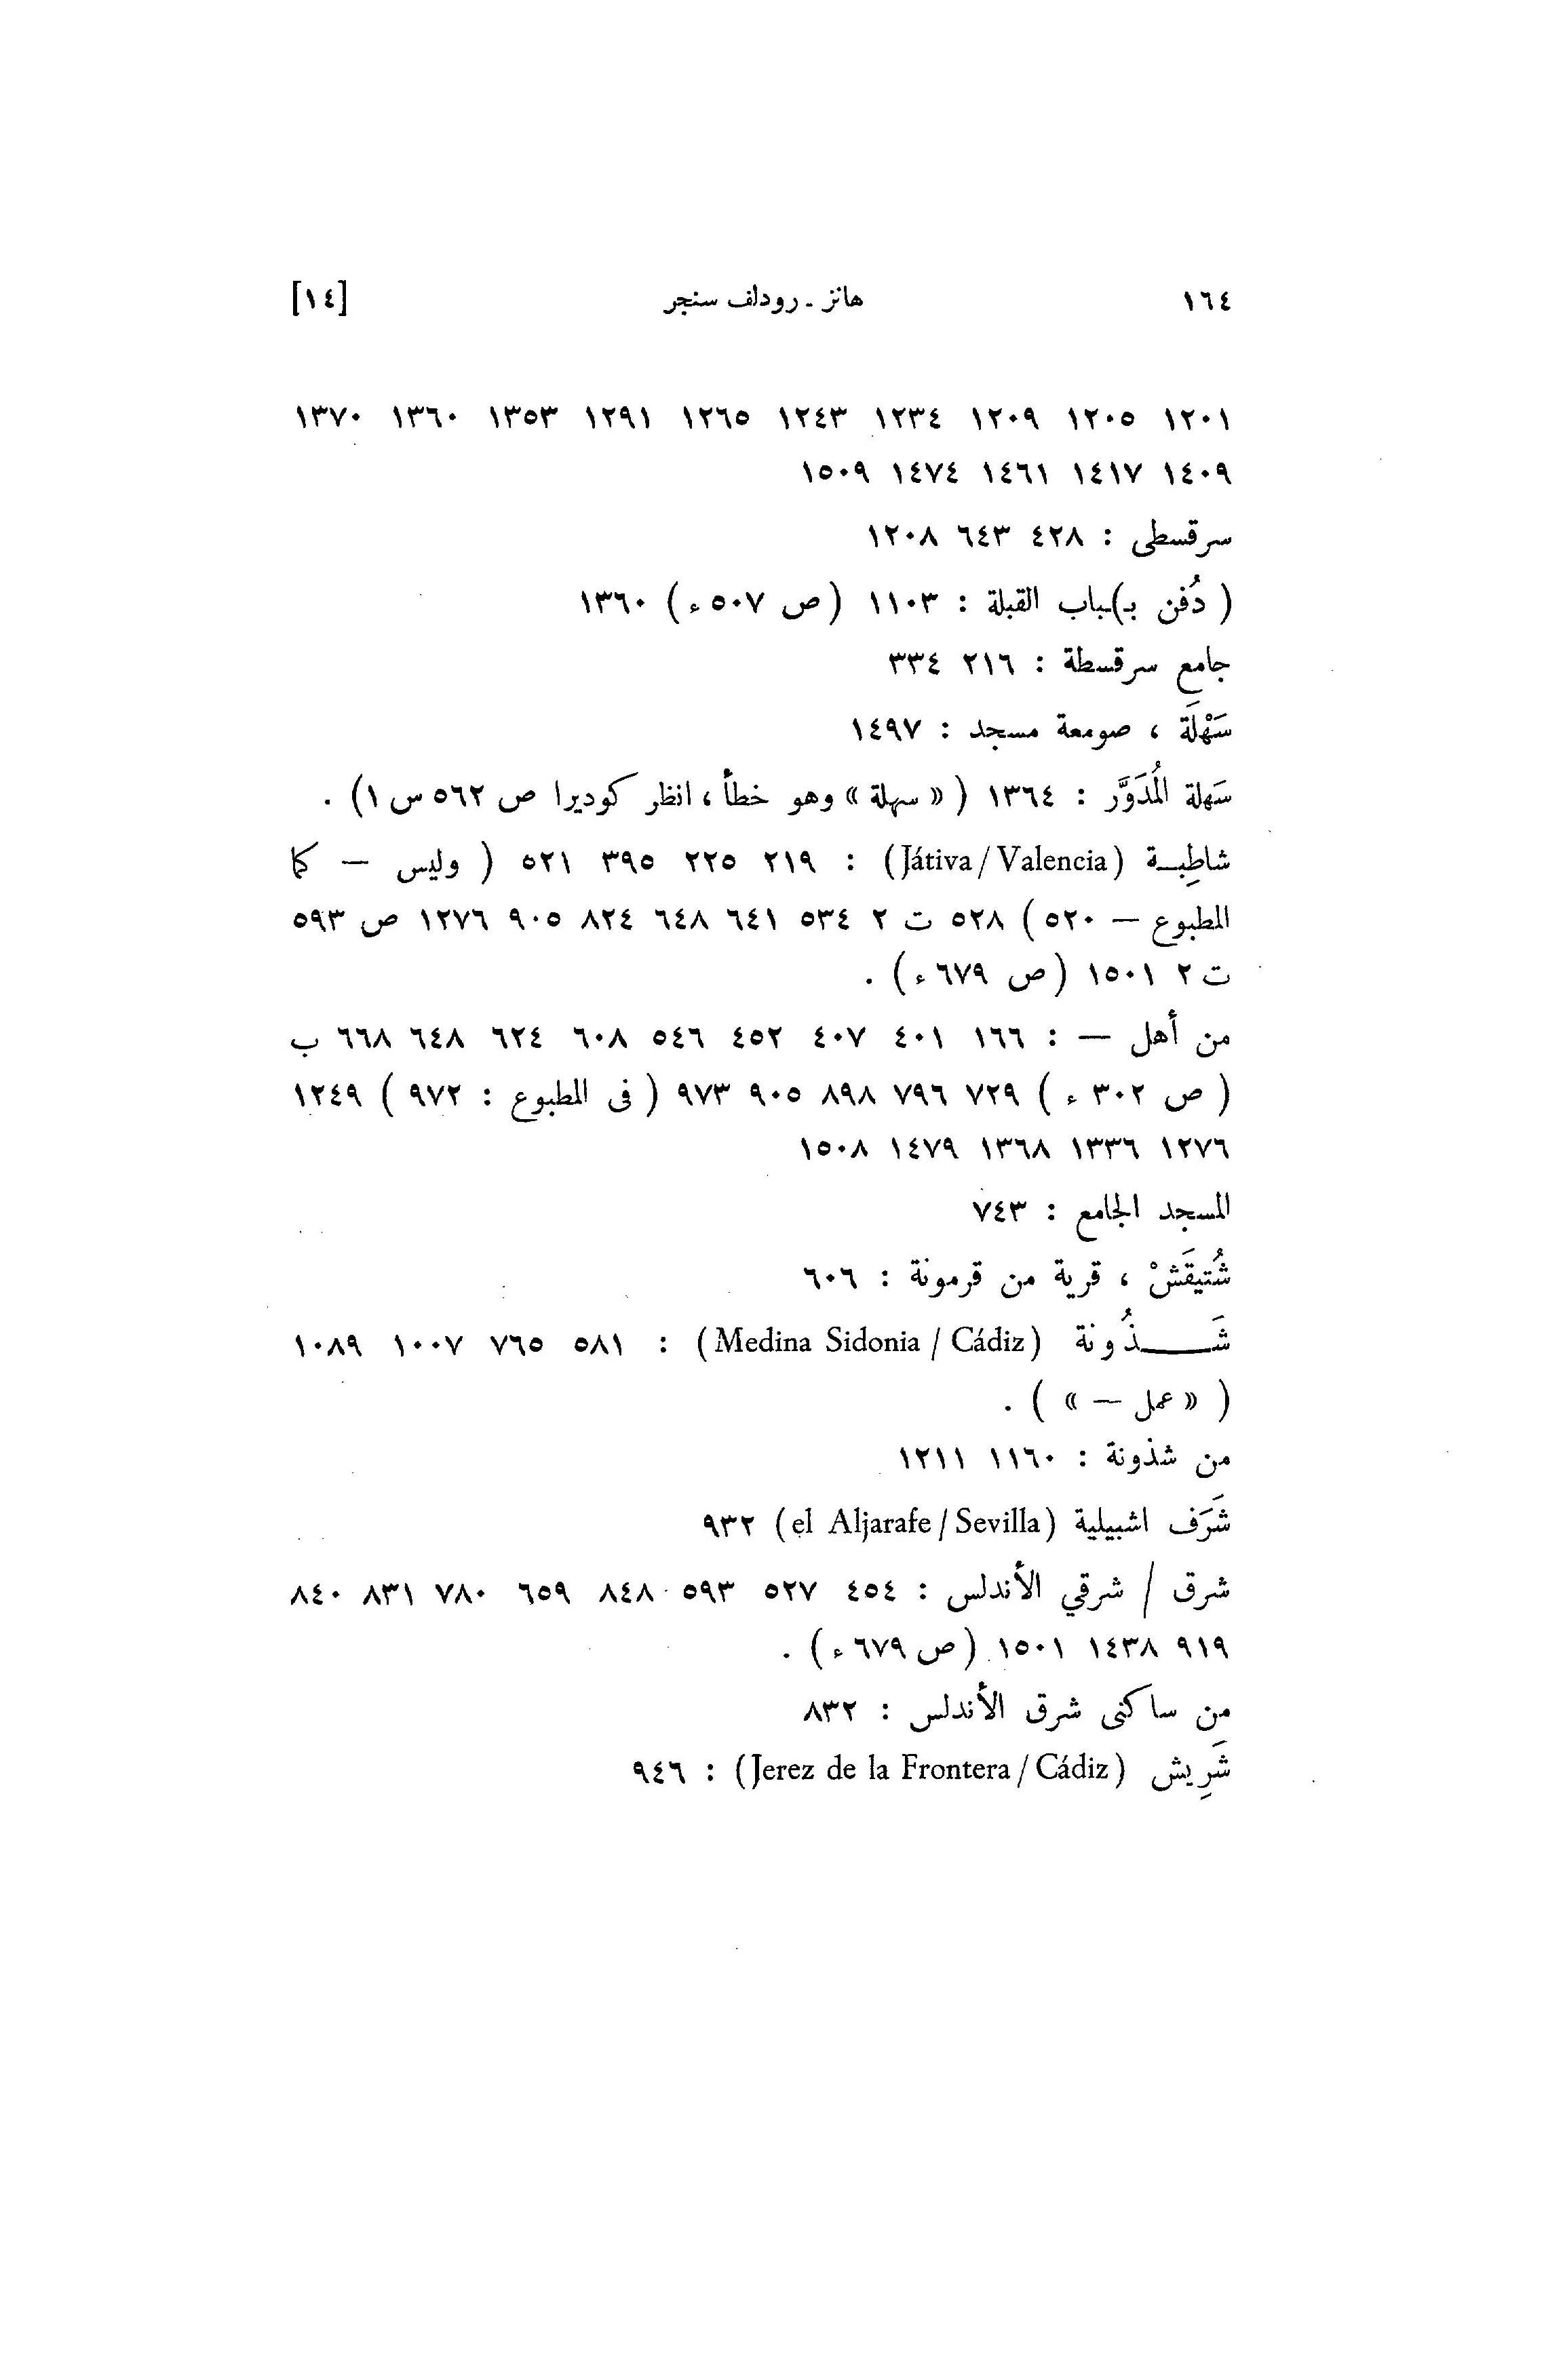 ١٦٤ هانز ـ رودلف سنجر [١٤]
١٢٠١ ١٢٠٥ ١٢٠٩ ١٢٣٤ ١٢٤٣ ١٢٦٥ ١٢٩١ ١٣٥٣ ١٣٦٠ ١٣٧٠
١٤٠٩ ١٤١٧ ١٤٦١ ١٤٧٤ ١٥٠٩
سرقسطى : ٤٢٨ ٦٤٣ ١٢٠٨
( دُفن بـ)ـباب القبلة : ١١٠٣ (ص ٥٠٧ء) ١٣٦٠
جامع سرقسطة : ٢١٦ ٣٣٤
سَهْلَة ، صومعة مسجد : ١٤٩٧
سَهلة المُدَوَّر : ١٣٦٤ ( « سهلة » وهو خطأ ، انظر كوديرا ص ٥٦٢ س ١) .
شاطِبـة (Játiva / Valencia) : ٢١٩ ٢٢٥ ٣٩٥ ٥٢١ ( وليس — كما
المطبوع — ٥٢٠ ) ٥٢٨ ت ٢ ٥٣٤ ٦٤١ ٦٤٨ ٨٢٤ ٩٠٥ ١٢٧٦ ص ٥٩٣
ت ٢ ١٥٠١ (ص ٦٧٩ء) .
من أهل — : ١٦٦ ٤٠١ ٤٠٧ ٤٥٢ ٥٤٦ ٦٠٨ ٦٢٤ ٦٤٨ ٦٦٨ ب
( ص ٣٠٢ ء ) ٧٢٩ ٧٩٦ ٨٩٨ ٩٠٥ ٩٧٣ ( فى المطبوع : ٩٧٢ ) ١٢٤٩
١٢٧٦ ١٣٣٦ ١٣٦٨ ١٤٧٩ ١٥٠٨
المسجد الجامع : ٧٤٣
شُتيقَشْ ، قرية من قرمونة : ٦٠٦
شَـــذُونة (Medina Sidonia / Cádiz) : ٥٨١ ٧٦٥ ١٠٠٧ ١٠٨٩
( « عمل — » ) .
من شذونة : ١١٦٠ ١٢١١
شَرَف اشبيلية (el Aljarafe / Sevilla) ٩٣٢
شرق / شرقي الأندلس : ٤٥٤ ٥٢٧ ٥٩٣ ٨٤٨ ٦٥٩ ٧٨٠ ٨٣١ ٨٤٠
٩١٩ ١٤٣٨ ١٥٠١ (ص ٦٧٩ء) .
من ساكنى شرق الأندلس : ٨٣٢
شَرِيش (Jerez de la Frontera / Cádiz) : ٩٤٦